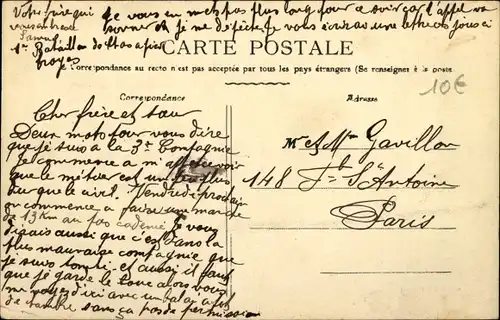 Votre frère qui
vous embrasse
1er Bataillon de chasseurs à pied
Troyes
Je vous en mets pas plus long pour ce soir car l'appel va
sonner et je me dépêche je vous écrirai une lettre jeudi
CARTE POSTALE
La Correspondance au recto n'est pas acceptée par tous les pays étrangers (Se renseigner à la poste
10€
Correspondance
Adresse
Cher frère et sœur
Deux mots pour vous dire
que je suis à la 3e Compagnie
Je commence a m'apercevoir
que le métier est un peu plus
dur que le civil. Vendredi prochain
on commence a faire une marche
de 13 Km au pas cadencé Je vous
dirais aussi que c'est dans la
plus mauvaise compagnie que
je suis tombé et aussi il faut
que je garde
me voyez d'ici avec un balai
de chambre sans ça pas de permission
Mr et Mme Gavillon
148 Fg St Antoine
Paris